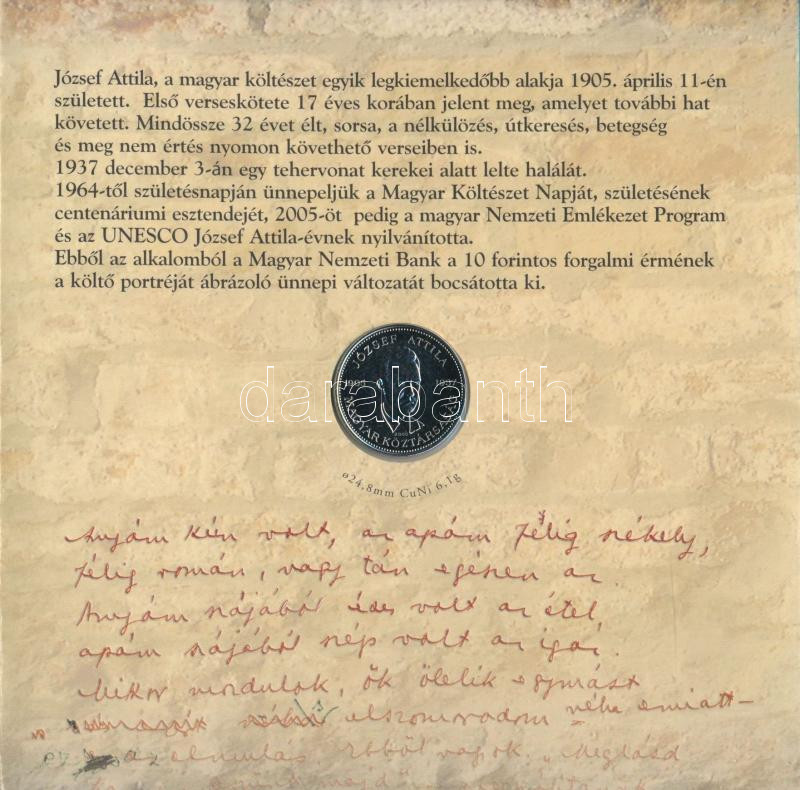 József Attila, a magyar költészet egyik legkiemelkedőbb alakja 1905. április 11-én
született.  Első verseskötete 17 éves korában jelent meg, amelyet további hat
követett. Mindössze 32 évet élt, sorsa, a nélkülözés, útkeresés, betegség
és meg nem értés nyomon követhető verseiben is.
1937 december 3-án egy tehervonat kerekei alatt lelte halálát.
1964-től születésnapján ünnepeljük a Magyar Költészet Napját, születésének
centenáriumi esztendejét, 2005-öt  pedig a magyar Nemzeti Emlékezet Program
és az UNESCO József Attila-évnek nyilvánította.
Ebből az alkalomból a Magyar Nemzeti Bank a 10 forintos forgalmi érmének
a költő portréját ábrázoló ünnepi változatát bocsátotta ki.
JÓZSEF ATTILA
1905 1937
MAGYAR KÖZTÁRSASÁG
darabanth
ø24,8mm CuNi 6,1g
Anyám kún volt, az apám félig székely,
félig román, vagy tán egészen az.
Anyám szájából édes volt az étel,
apám szájából szép volt az igaz.
Mikor mozdulok, ők ölelik egymást
elszomorodom néha emiatt –
az elmulás. Ebből vagyok. „Meglásd